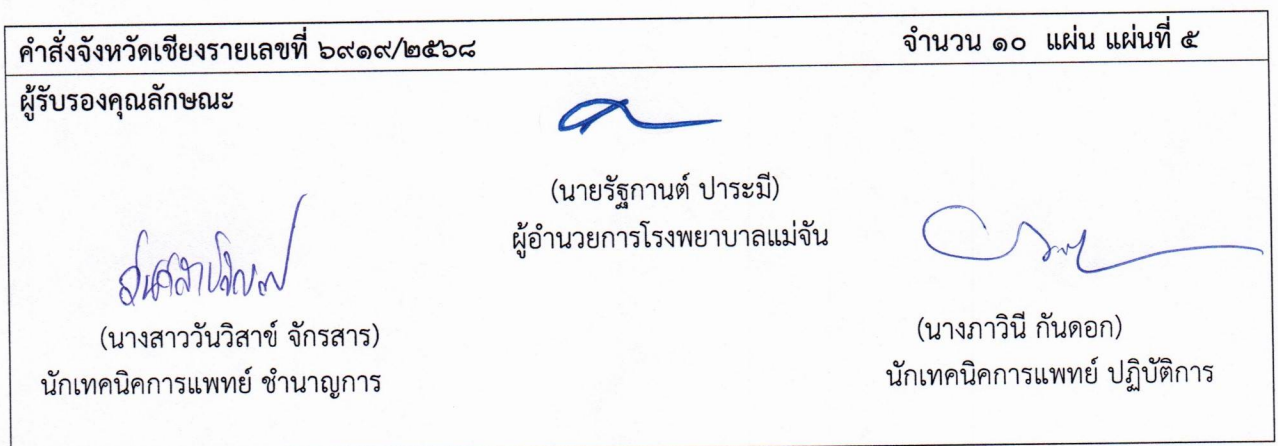 คำสั่งจังหวัดเชียงรายเลขที่ ๖๙๑๙/๒๕๖๘ จำนวน ๑๐ แผ่น แผ่นที่ ๕
ผู้รับรองคุณลักษณะ
(นายรัฐกานต์ ปาระมี)
ผู้อำนวยการโรงพยาบาลแม่จัน
(นางสาววันวิสาข์ จักรสาร)
นักเทคนิคการแพทย์ ชำนาญการ
(นางภาวินี กันดอก)
นักเทคนิคการแพทย์ ปฏิบัติการ